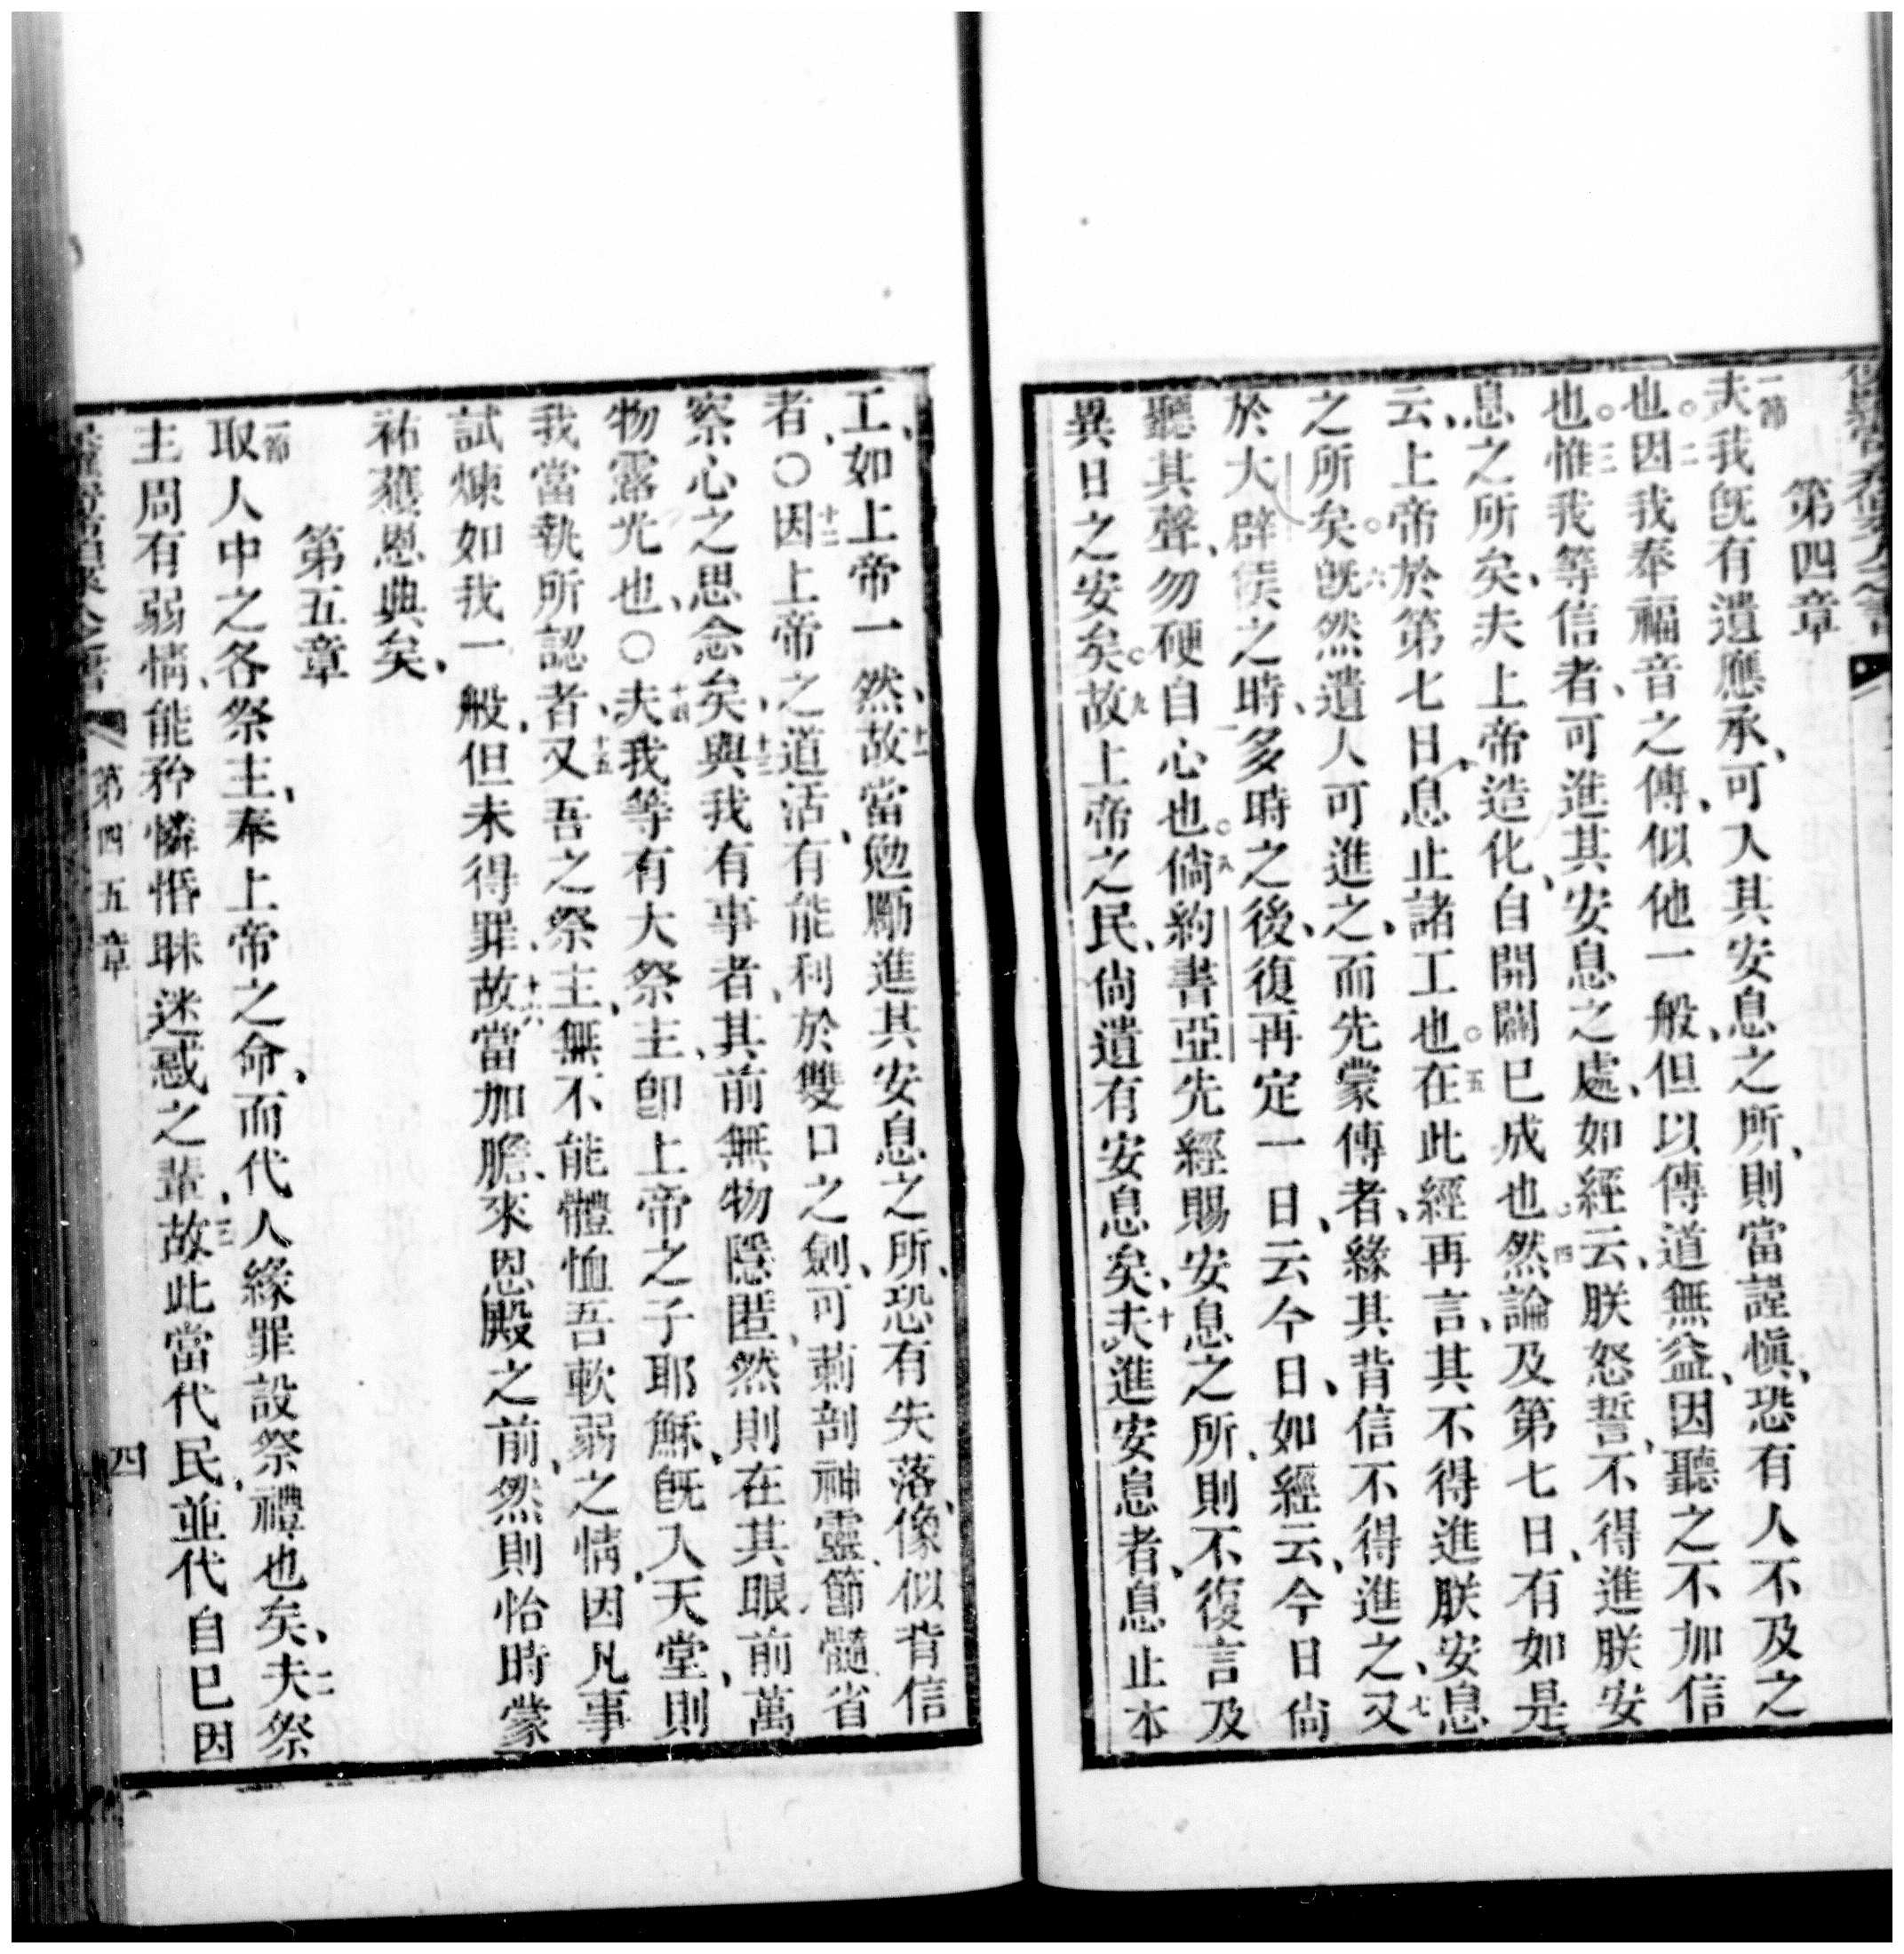 第四章
一節夫我旣有遺應承、可入其安息之所、則當謹愼、恐有人不及之
也。二因我奉福音之傳、似他一般、但以傳道無益、因聽之不加信
也。三惟我等信者、可進其安息之處、如經云、朕怒誓、不得進朕安
息之所矣、夫上帝造化、自開闢已成也。四然論及第七日、有如是
云、上帝於第七日、息止諸工也。五在此經再言、其不得進朕安息
之所矣。六旣然遺人可進之、而先蒙傳者、緣其背信不得進之、七又
於大辟侯之時、多時之後、復再定一日、云今日、如經云、今日倘
聽其聲、勿硬自心也。八倘約書亞先經賜安息之所、則不復言及
異日之安矣。九故上帝之民、尙遺有安息矣、十夫進安息者、息止本
工、如上帝一然、十一故當勉勵進其安息之所、恐有失落、像似背信
者、〇十二因上帝之道活、有能利於雙口之劍、可剌剖神靈、節髓、省
察心之思念矣、十三與我有事者、其前無物隱匿、然則在其眼前萬
物露光也、〇十四夫我等有大祭主、卽上帝之子耶穌、旣入天堂、則
我當執所認者、十五又吾之祭主、無不能體恤吾軟弱之情、因凡事
試煉如我一般、但未得罪、十六故當加膽、來恩殿之前、然則怡時蒙
祐獲恩典矣、
第五章
一節取人中之各祭主、奉上帝之命、而代人緣罪設祭禮也矣、二夫祭
主周有弱情、能矜憐惛昧迷惑之輩、三故此當代民、並代自已因
第四五章
四